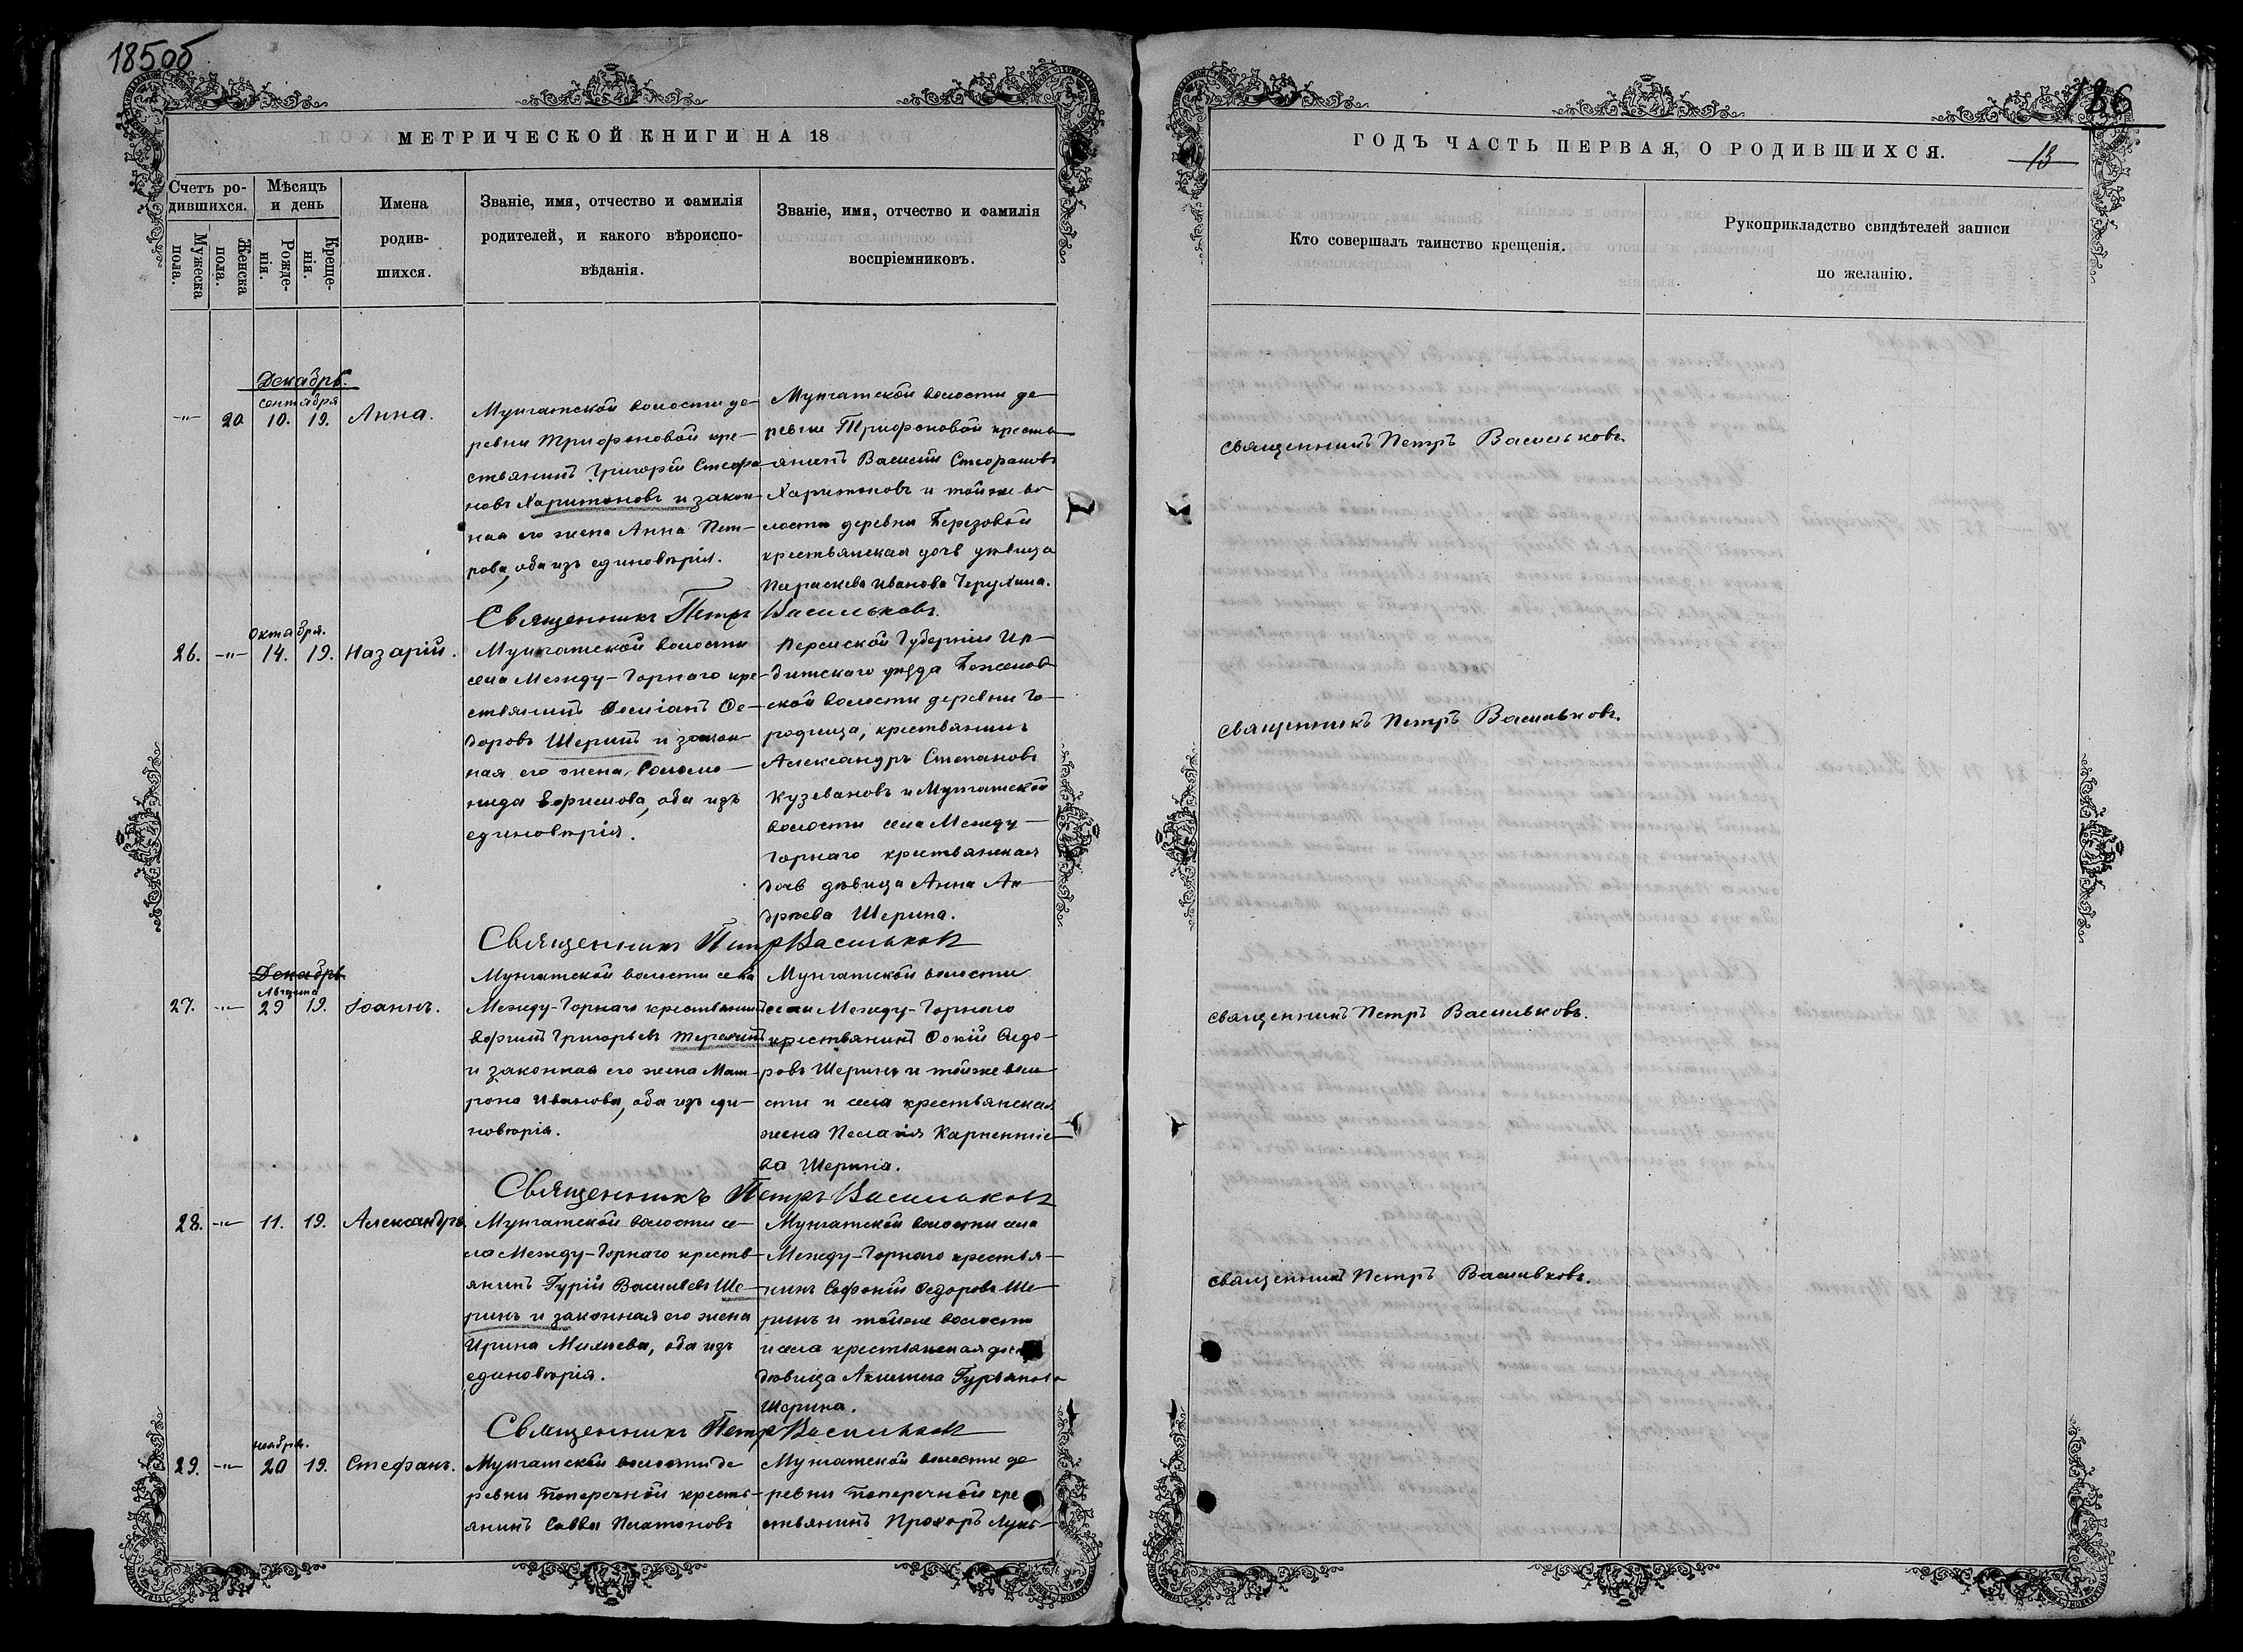 185об
МЕТРИЧЕСКОЙ КНИГИ НА 18
Счетъ ро-
дившихся.
Мужеска
пола.
Женска
пола.
Мѣсяцъ
и день
Рожде-
нія.
Креще-
нія.
Имена
родив-
шихся.
Званіе, имя, отчество и фамилія
родителей, и какого вѣроиспо-
вѣданія.
Званіе, имя, отчество и фамилія
воспріемниковъ.
Декабрь.
сентября
-"- 20 10. 19. Анна.
Мунгатской волости де-
ревни Трифоновой кре-
стьянинъ Григорій Стефа-
новъ Харитоновъ и закон-
ная его жена Анна Пет-
рова, оба изъ единовѣрія.
Мунгатской волости де-
ревни Трифоновой кресть-
янинъ Василій Стефановъ
Харитоновъ и той же во-
лости деревни Березовой
крестьянская дочь дѣвица
Параскева Иванова
Священникъ Петръ Васильковъ.
октября.
26. -"- 14. 19. Назарій.
Мунгатской волости
села Между-Горнаго кре-
стьянинъ Ѳе-
доровъ Шеринъ и закон-
ная его жена Соломо-
нида Ефимова, оба изъ
единовѣрія.
Пермской Губерніи Ир-
битскаго уѣзда
ской волости деревни Го-
родища, крестьянинъ
Александръ Степановъ
Кузевановъ и Мунгатской
волости села Между-
Горнаго крестьянская
дочь дѣвица Анна Ан-
дрѣева Шерина.
Священникъ Петръ Васильковъ
Декабрь
Августа
27. -"- 29 19. Іоаннъ.
Мунгатской волости села
Между-Горнаго крестьянинъ
Григорьевъ
и законная его жена Мат-
рона Иванова, оба изъ еди-
новѣрія.
Мунгатской волости
села Между-Горнаго
крестьянинъ Ѳокій Сидо-
ровъ Шеринъ и той же воло-
сти и села крестьянская
жена Пелагія Карпентіе-
ва Шерина.
Священникъ Петръ Васильковъ
28. -"- 11. 19. Александръ.
Мунгатской волости се-
ла Между-Горнаго кресть-
янинъ Гурій Васильевъ Ше-
ринъ и законная его жена
Ирина оба изъ
единовѣрія.
Мунгатской волости села
Между-Горнаго крестья-
нинъ Софоній Ѳедоровъ Ше-
ринъ и той же волости
и села крестьянская
дѣвица Акилина Гурьянова
Шерина.
Священникъ Петръ Васильковъ
ноября.
29. -"- 20 19. Стефанъ.
Мунгатской волости де
ревни Поперечной кресть-
янинъ Савва Платоновъ
Мунгатской волости де
ревни Поперечной кре
стьянинъ Прохоръ Лукь-
186
ГОДЪ ЧАСТЬ ПЕРВАЯ, О РОДИВШИХСЯ.
13
Кто совершалъ таинство крещенія.
Рукоприкладство свидѣтелей записи
по желанію.
священникъ Петръ Васильковъ.
священникъ Петръ Васильковъ.
священникъ Петръ Васильковъ.
священникъ Петръ Васильковъ.